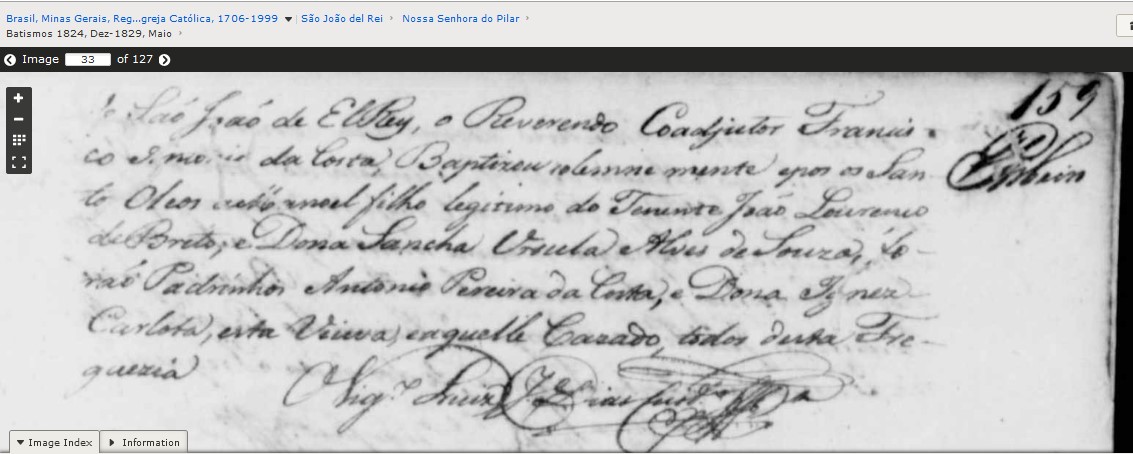 Brasil, Minas Gerais, Reg...greja Católica, 1706-1999 ▼ São João del Rei › Nossa Senhora do Pilar ›
Batismos 1824, Dez-1829, Maio ›
Image 33 of 127
159
São João de ElRey, o Reverendo Coadjutor Francis
co da Costa, Baptizou solemnemente epos os San
to Oleos filho legitimo do Tenente João Lourenço
de Brito, e Dona Sancha Ursula Alves de Souza, fo
raõ Padrinhos Antonio Pereira da Costa, e Dona Ignez
Carlota, esta Viuva, eaquelle Cazado, todos desta Fre
guezia
Image Index
Information